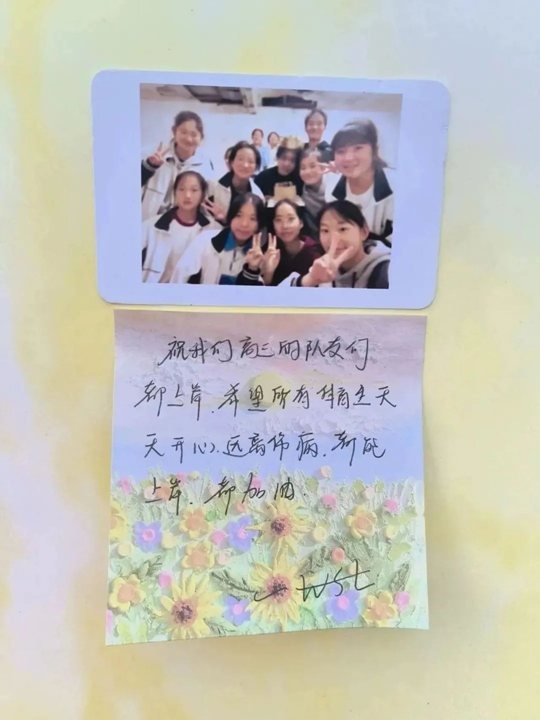 祝我们高三的队友们
都上岸.希望所有体育生天
天开心.远离伤病.都能
上岸.都加油.
— WSt